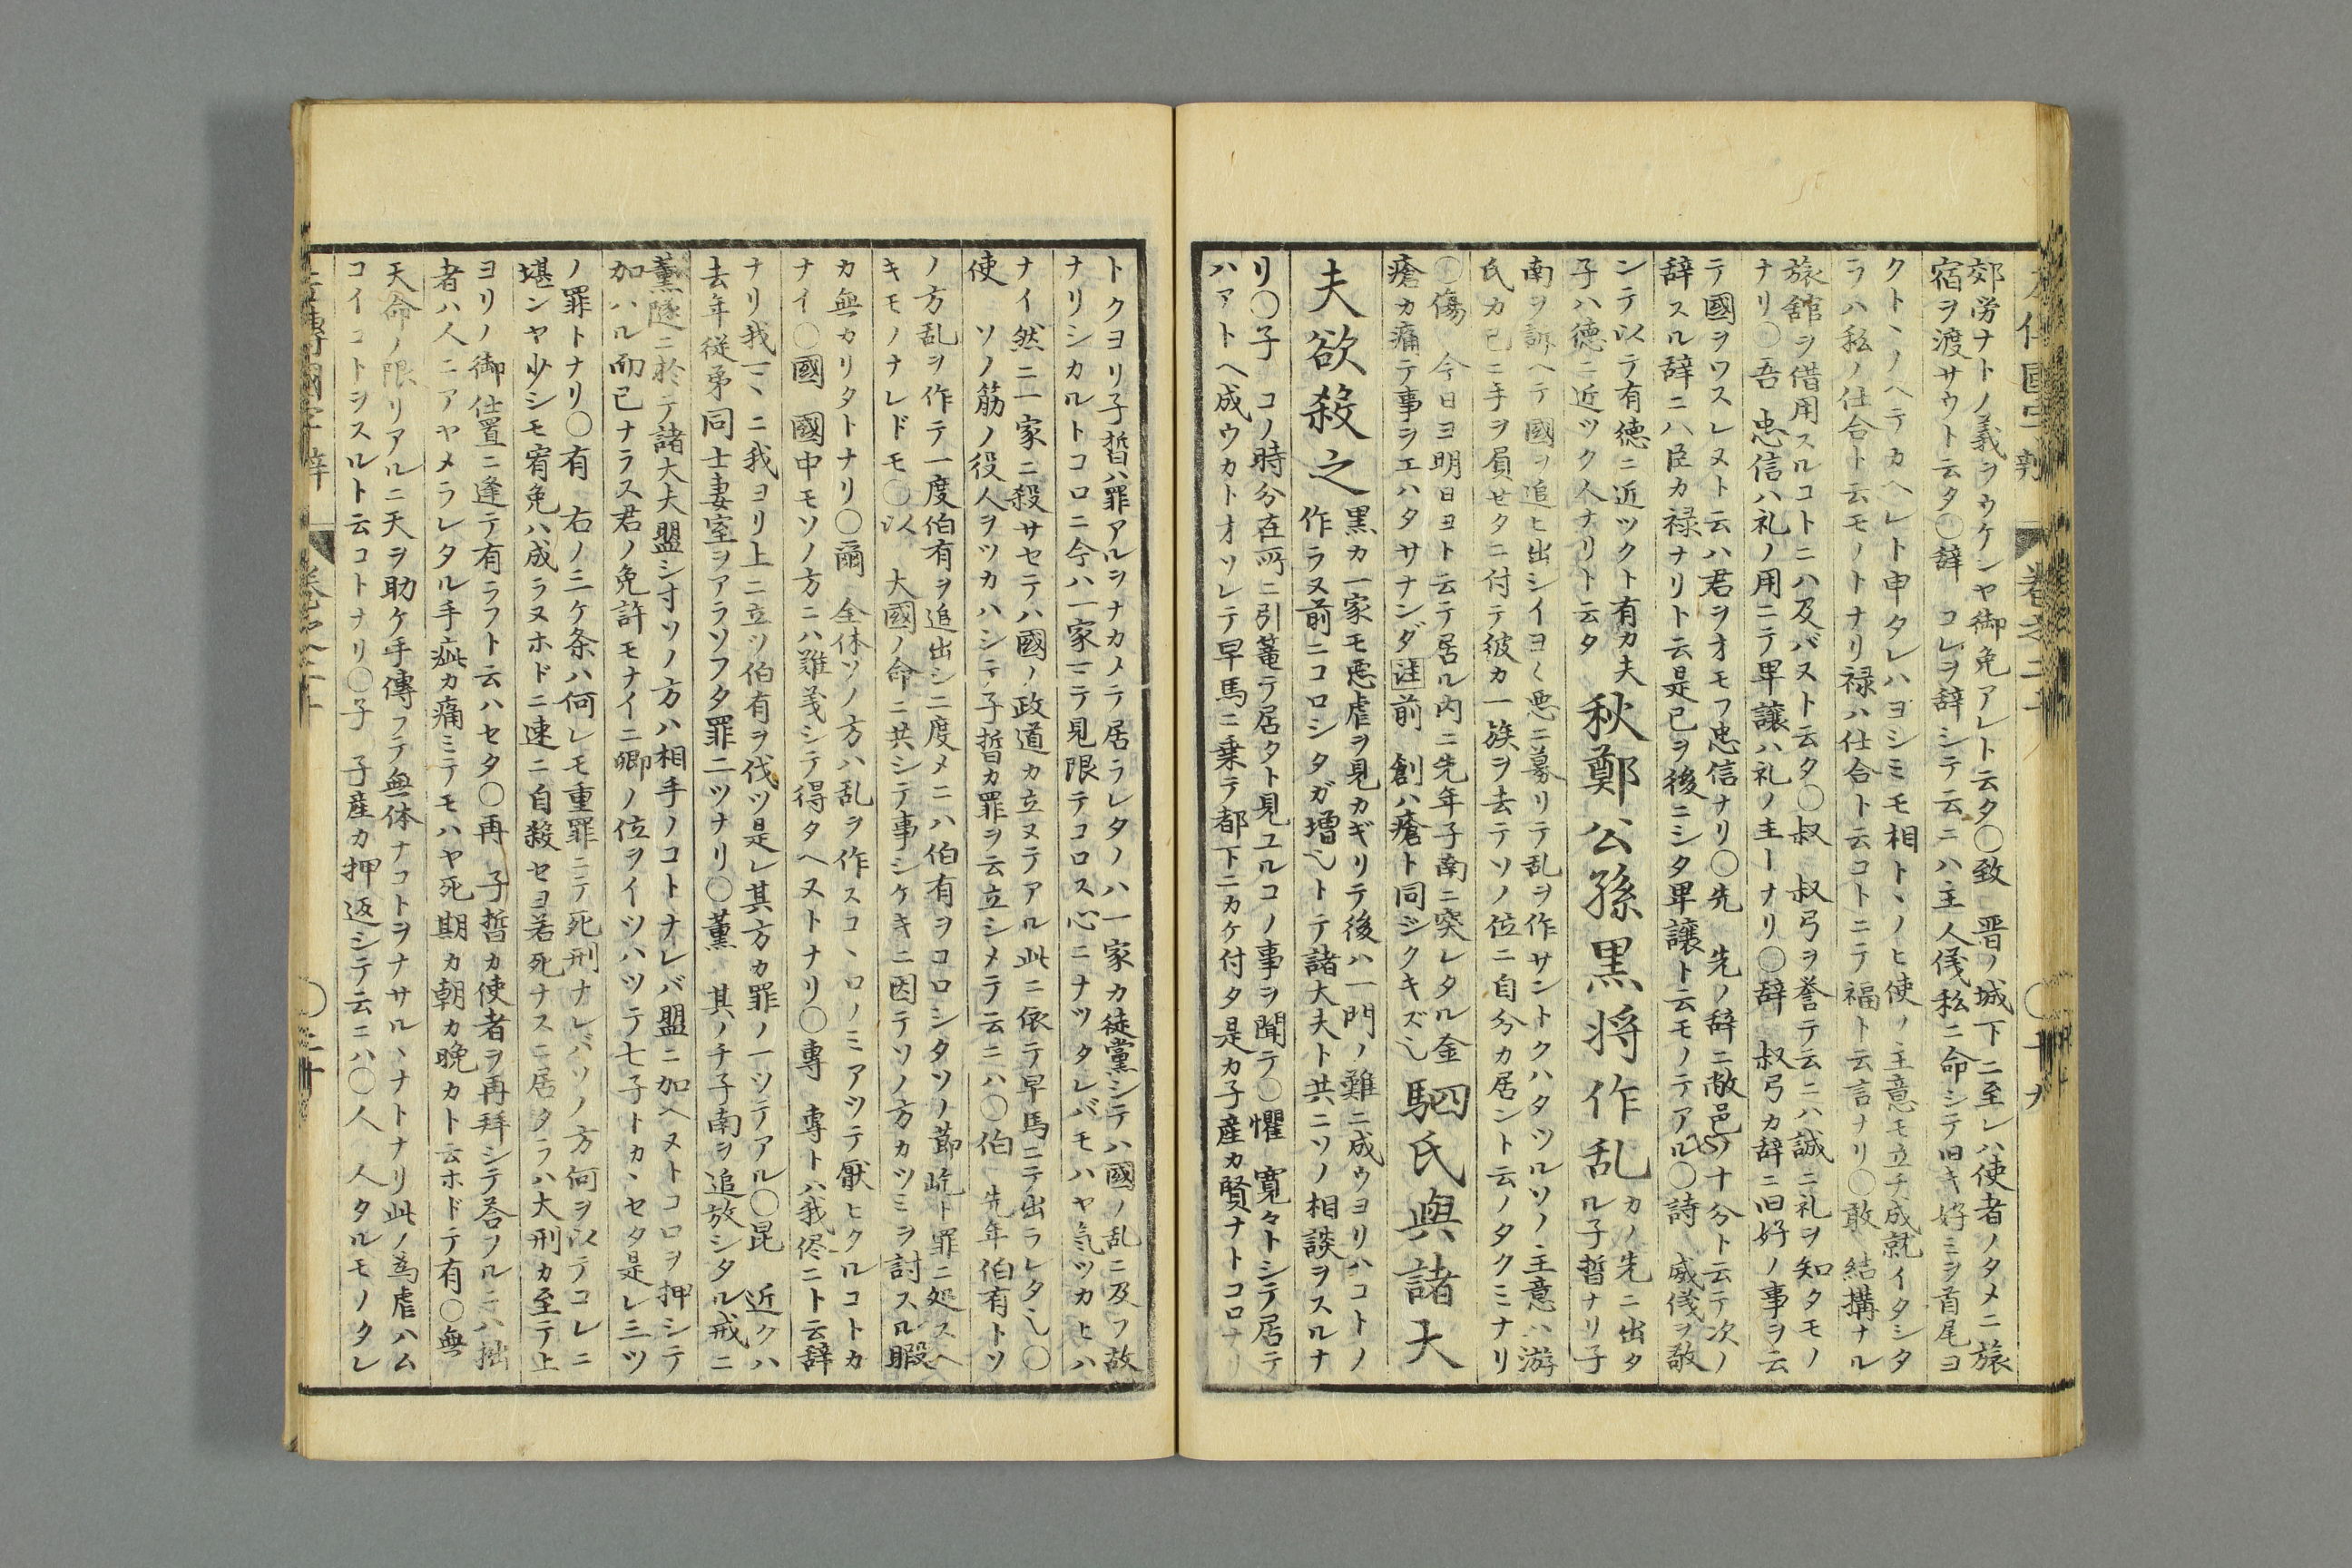 左傳國字辯 卷之二十 〇十九
郊労ナトノ義ヲウケシヤ御免アレト云タ〇致 晋ノ城下ニ至レハ使者ノタメニ旅
宿ヲ渡サウト云タ〇辞 コレヲ辞シテ云ニハ主人儀私ニ命シテ旧キ好ミヲ首尾ヨ
クトヽノヘテカヘレト申タレハヨシミモ相トヽノヒ使ノ主意モ立チ成就イタシタ
ラハ私ノ仕合ト云モノトナリ禄ハ仕合ト云コトニテ福ト云言ナリ〇敢 結搆ナル
旅舘ヲ借用スルコトニハ及バヌト云タ〇叔 叔弓ヲ誉テ云ニハ誠ニ礼ヲ知タモノ
ナリ〇吾 忠信ハ礼ノ用ニテ卑譲ハ礼ノ主ーナリ〇辞 叔弓カ辞ニ旧好ノ事ヲ云
テ國ヲワスレヌト云ハ君ヲオモフ忠信ナリ〇先 先ノ辞ニ敝邑ノ十分ト云テ次ノ
辞スル辞ニハ臣カ禄ナリト云是已ヲ後ニシタ卑譲ト云モノテアル〇詩 威儀ヲ敬
ンテ以テ有徳ニ近ツクト有カ夫
子ハ徳ニ近ツク人ナリト云タ
秋鄭公孫黒将作乱
カノ先ニ出タ
ル子晳ナリ子
南ヲ訴ヘテ國ヲ追ヒ出シイヨ〱悪ニ募リテ乱ヲ作サントクハタツルソノ主意ハ游
氏カ已ニ手ヲ屓セタニ付テ彼カ一族ヲ去テソノ位ニ自分カ居ント云ノタクミナリ
〇傷 今日ヨ明日ヨト云テ居ル内ニ先年子南ニ突レタル金
瘡カ痛テ事ヲエハタサナンダ注前 創ハ瘡ト同ジクキズ也
駟氏與諸大
夫欲殺之
黒カ一家モ悪虐ヲ見カギリテ後ハ一門ノ難ニ成ウヨリハコトノ
作ラヌ前ニコロシタガ増也トテ諸大夫ト共ニソノ相談ヲスルナ
リ〇子 コノ時分在所ニ引篭テ居タト見ユルコノ事ヲ聞テ〇懼 寛々トシテ居テ
ハアトヘ成ウカトオソレテ早馬ニ乗テ都下ニカケ付タ是カ子産カ賢ナトコロナリ
トクヨリ子晳ハ罪アルヲナカメテ居ラレタノハ一家カ徒黨シテハ國ノ乱ニ及フ故
ナリシカルトコロニ今ハ一家ニテ見限テコロス心ニナツタレバモハヤ気ツカヒハ
ナイ然ニ一家ニ殺サセテハ國ノ政道カ立ヌテアル此ニ依テ早馬ニテ出ラレタ也〇
使 ソノ筋ノ役人ヲツカハシテ子晳カ罪ヲ云立シメテ云ニハ〇伯 先年伯有トソ
ノ方乱ヲ作テ一度伯有ヲ追出シ二度メニハ伯有ヲコロシタソノ節屹ト罪ニ処スヘ
キモノナレドモ〇以 大國ノ命ニ共シテ事シケキニ因テソノ方カツミヲ討スル暇
カ無カリタトナリ〇爾 全休ソノ方ハ乱ヲ作スコヽロノミアツテ厭ヒクルコトカ
ナイ〇國 國中モソノ方ニハ難義シテ得タヘヌトナリ〇專 專トハ我侭ニト云辞
ナリ我一ヽニ我ヨリ上ニ立ツ伯有ヲ伐ツ是レ其方カ罪ノ一ツテアル〇昆 近クハ
去年従弟同士妻室ヲアラソフタ罪二ツナリ〇薫 其ノチ子南ヲ追放シタル戒ニ
薫隧ニ於テ諸大夫盟シ寸ソノ方ハ相手ノコトナレバ盟ニ加ヘヌトコロヲ押シテ
加ハル而已ナラス君ノ免許モナイニ卿ノ位ヲイツハツテ七子トカヽセタ是レ三ツ
ノ罪トナリ〇有 右ノ三ケ条ハ何レモ重罪ニテ死刑ナレバソノ方何ヲ以テコレニ
堪ンヤ少シモ宥免ハ成ラヌホドニ速ニ自殺セヨ若死ナスニ居タラハ大刑カ至テ上
ヨリノ御仕置ニ逢テ有ラフト云ハセタ〇再 子晳カ使者ヲ再拜シテ荅フルニハ拙
者ハ人ニアヤメラレタル手疵カ痛ミテモハヤ死期カ朝カ晩カト云ホドテ有〇無
天命ノ限リアルニ天ヲ助ケ手傳フテ無体ナコトヲナサルヽナトナリ此ノ為虐ハム
コイコトヲスルト云コトナリ〇子 子産カ押返シテ云ニハ〇人 人タルモノタレ
左傳國字辯 卷之二十 〇二十